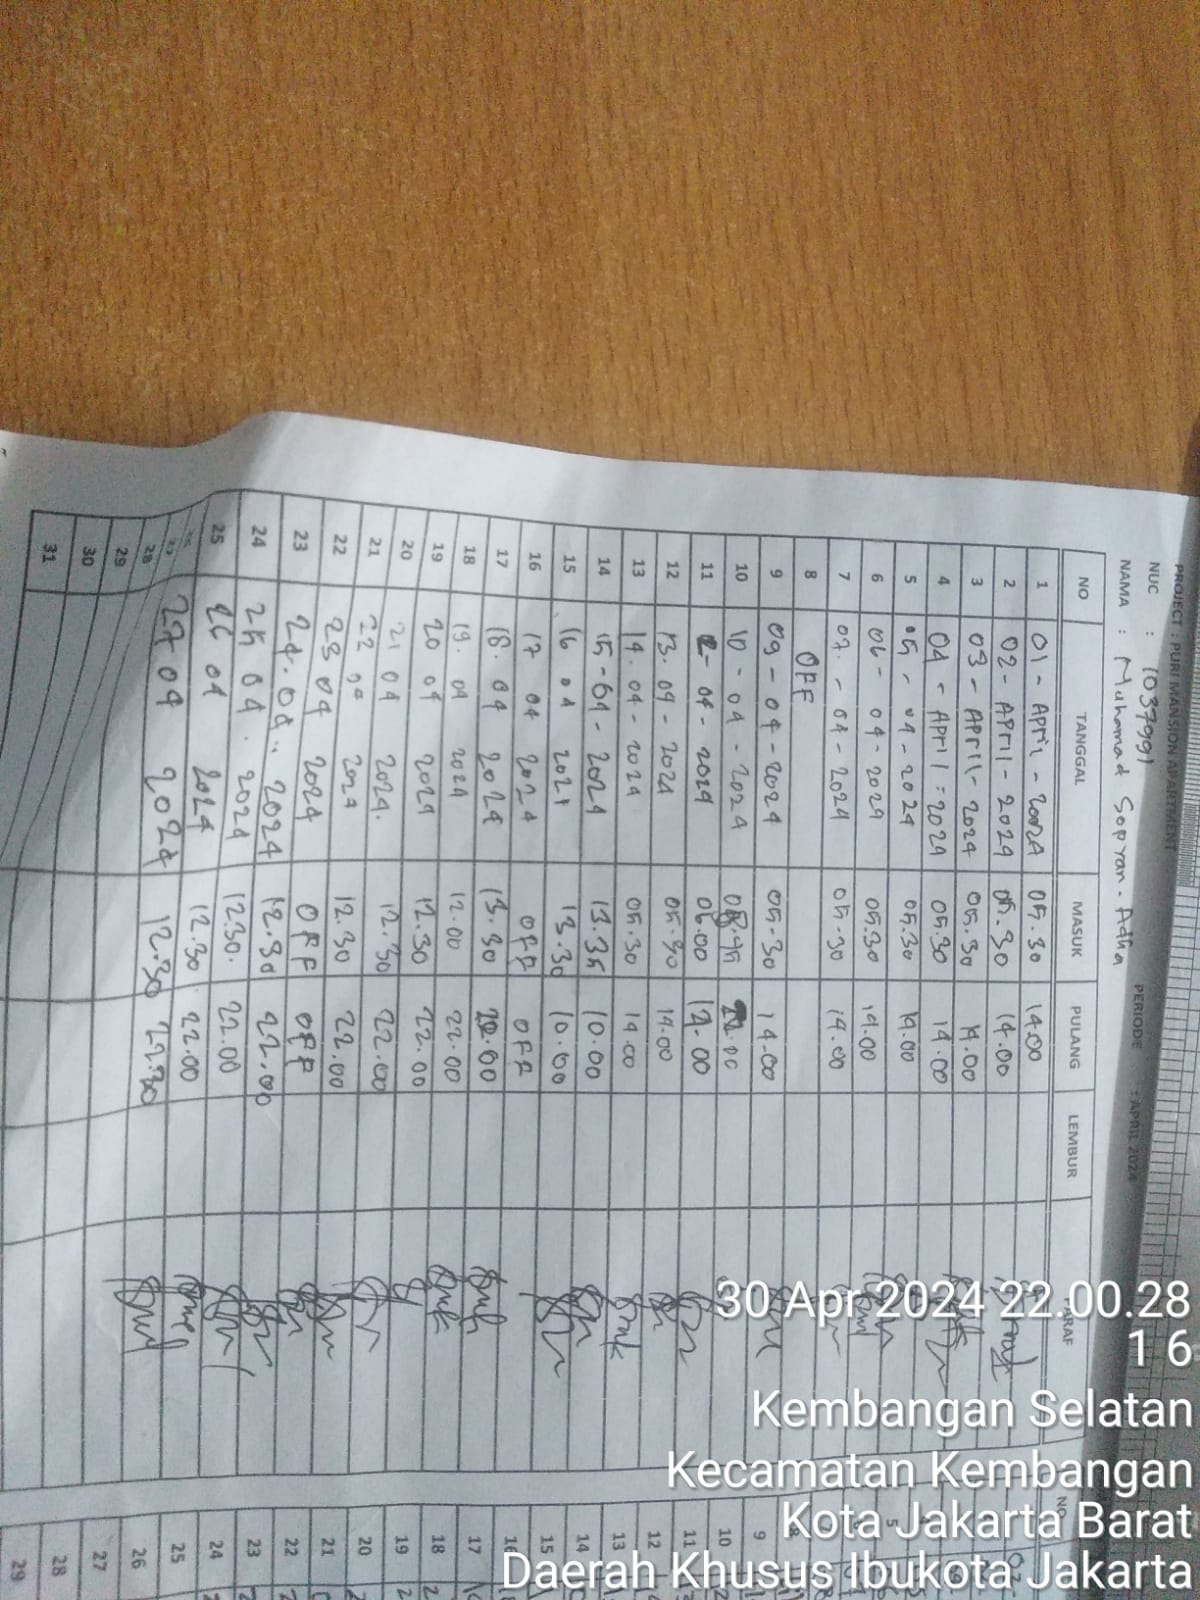 PROJECT : PURI MANSION APARTMENT
NUC : 1037991 PERIODE : APRIL 2024
NAMA : Muhamad Sopyan. Adha
NO TANGGAL MASUK PULANG LEMBUR PARAF
1 01 - April - 2024 05.30 14.00
2 02 - APril - 2024 05.30 14.00
3 03 - APril - 2024 05.30 14.00
4 04 - April - 2024 05.30 14.00
5 05 - 04 - 2024 05.30 14.00
6 06 - 04 - 2024 05.30 14.00
7 07 - 04 - 2024 05-30 14.00
8 OFF
9 09 - 04 - 2024 05-30 14.00
10 10 - 04 - 2024
11 04 - 2024 06.00
12 13. 04 - 2024 05.30 14.00
13 14. 04 - 2024 05.30 14.00
14 15 - 04 - 2024 13.35 10.00
15 16 04 2024 13.30 10.00
16 17 04 2024 OFF OFF
17 18. 04 2024 13.30
18 19. 04 2024 12.00 22.00
19 20 04 2024 12.30 22.00
20 21 04 2024. 12.30 22.00
21 22 04 2024 12.30 22.00
22 23 04 2024 OFF OFF
23 24. 04. 2024 12.30 22.00
24 25 04. 2024 12.30. 22.00
25 26 04 2024 12.30 22.00
26
27 27 04 2024 12.30 22.30
28
29
30
31
NO
5
8
9
10
11
12
13
14
15
16
17
18
19
20
21
22
23
24
25
26
27
28
29
30 Apr 2024 22.00.28
1 6
Kembangan Selatan
Kecamatan Kembangan
Kota Jakarta Barat
Daerah Khusus Ibukota Jakarta